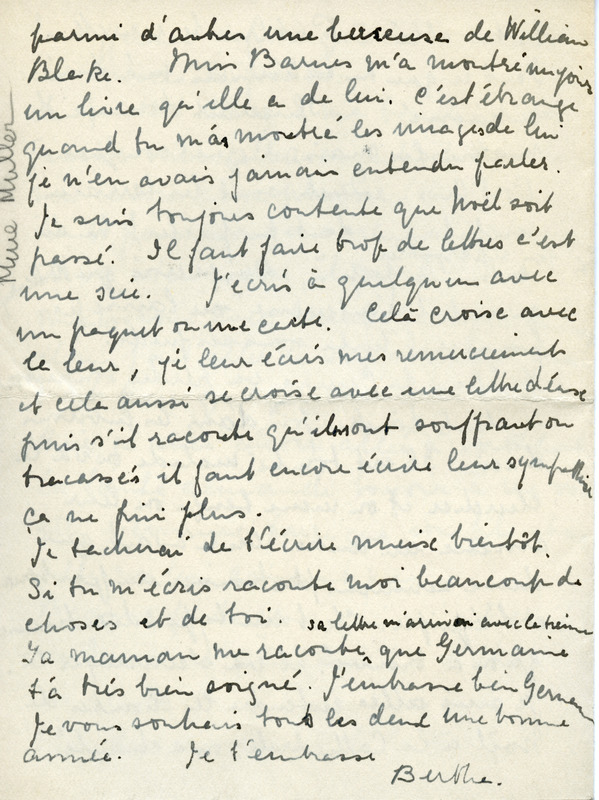 parmi d'autres une berceuse de William
Blake. Miss Barnes m'a montré
un livre qu'elle a de lui. C'est étrange
quand tu m'as montré les images de lui
je n'en avais jamais entendu parler.
Je suis toujours contente que Noël soit
passé. Il faut faire trop de lettres c'est
une scie. J'écris à quelqu'un avec
un paquet ou une carte. Celà croise avec
le leur, je leur écris mes remerciements
et cela aussi se croise avec une lettre d'eux
puis s'il raconte qu'ils sont souffrant ou
tracassés il faut encore écrire leur sympathie
ça ne fini plus.
Je tacherai de t'écrire mieux bientôt.
Si tu m'écris raconte moi beaucoup de
choses et de toi. sa lettre m'arrive avec la tienne
Ta maman me raconte que Germaine
t'a très bien soigné. J'embrasse bien Germaine
Je vous souhais tous les deux une bonne
année. Je t'embrasse
Berthe.
Muller